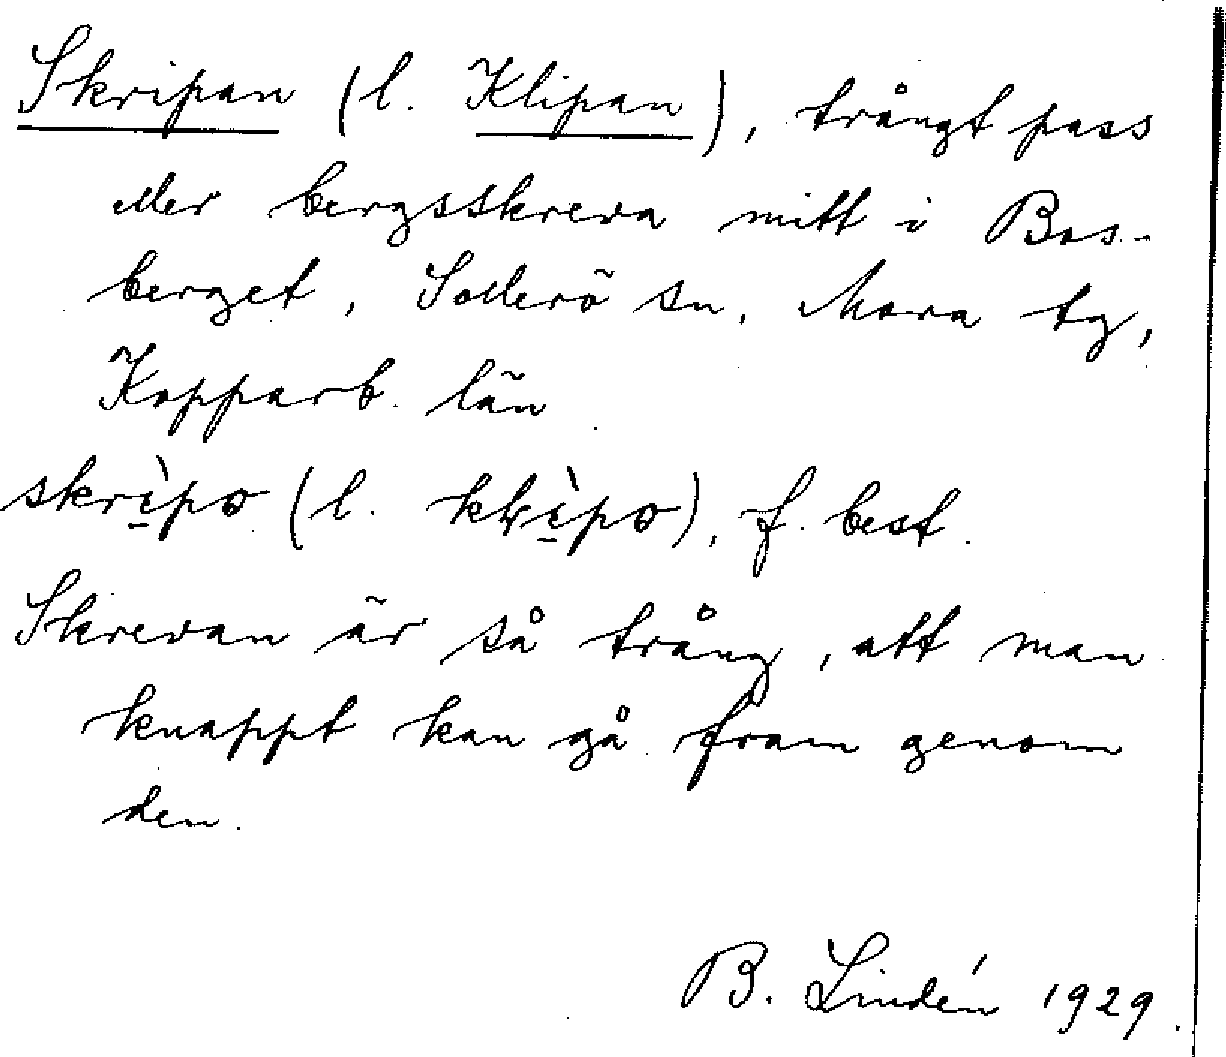 Skripan (l. Klipan), trångt pass
eller bergsskreva mitt i Bos-
berget, Sollerö sn, Mora tg,
Kopparb. län
skri̠̇̀po (l. kɬi̠̇̀po), f. best.
Skrevan är så trång, att man
knappt kan gå fram genom
den.
B. Lindén 1929.